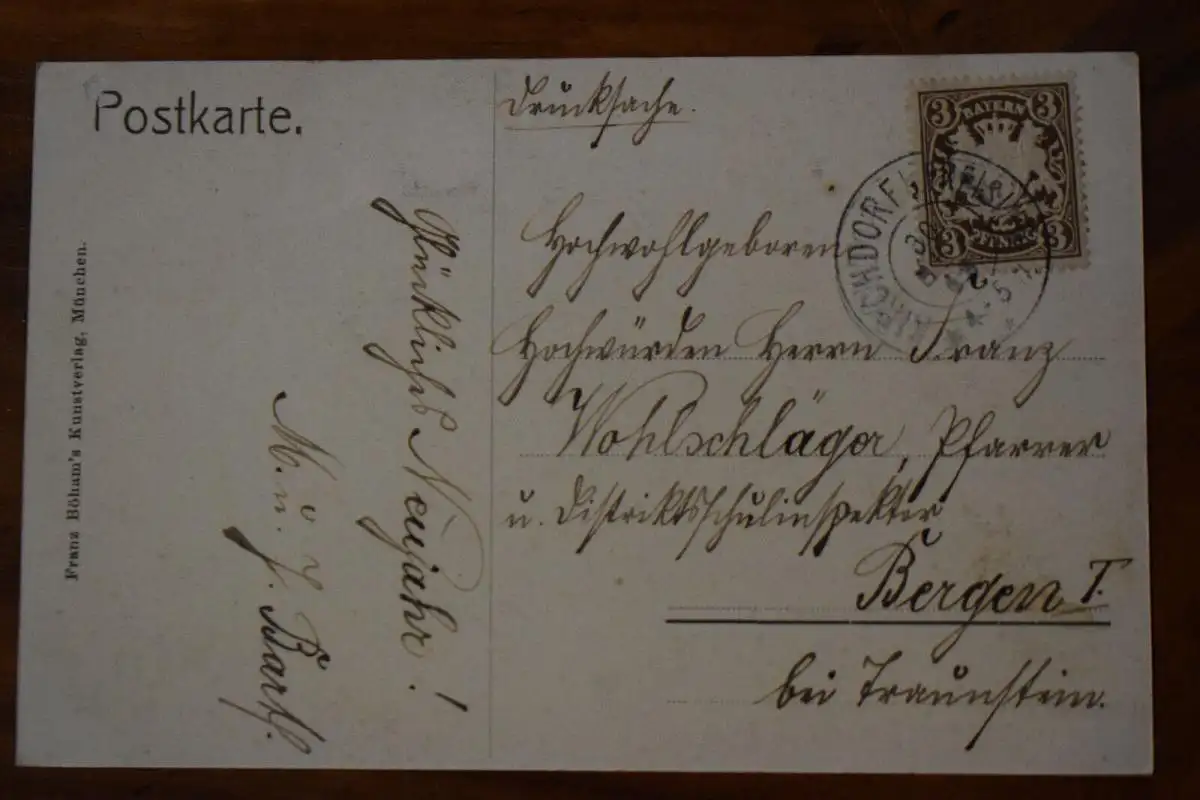 Postkarte.
Franz Böham's Kunstverlag, München.
Glückliches Neujahr!
M. u. J. Bartl.
Drucksache.
3 BAYERN 3
3 PFENNIG 3
KIRCHDORF
30
4-5
Hochwohlgeboren
Hochwürden Herrn Franz
Wohlschläger, Pfarrer
u. Distriktsschulinspektor
Bergen T.
bei Traunstein.